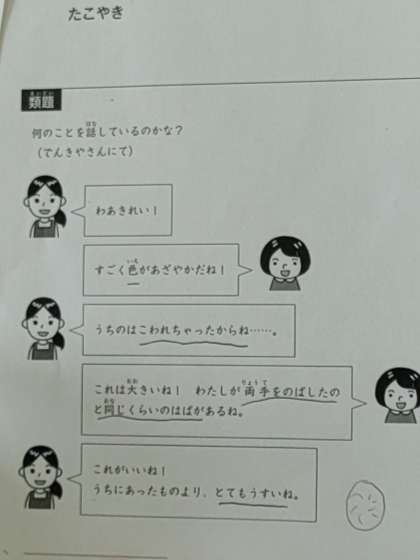 たこやき
類題
何のことを話しているのかな?
(でんきやさんにて)
わあきれい!
すごく色があざやかだね!
うちのはこわれちゃったからね……。
これは大きいね! わたしが両手をのばしたの
と同じくらいのはばがあるね。
これがいいね!
うちにあったものより、とてもうすいね。